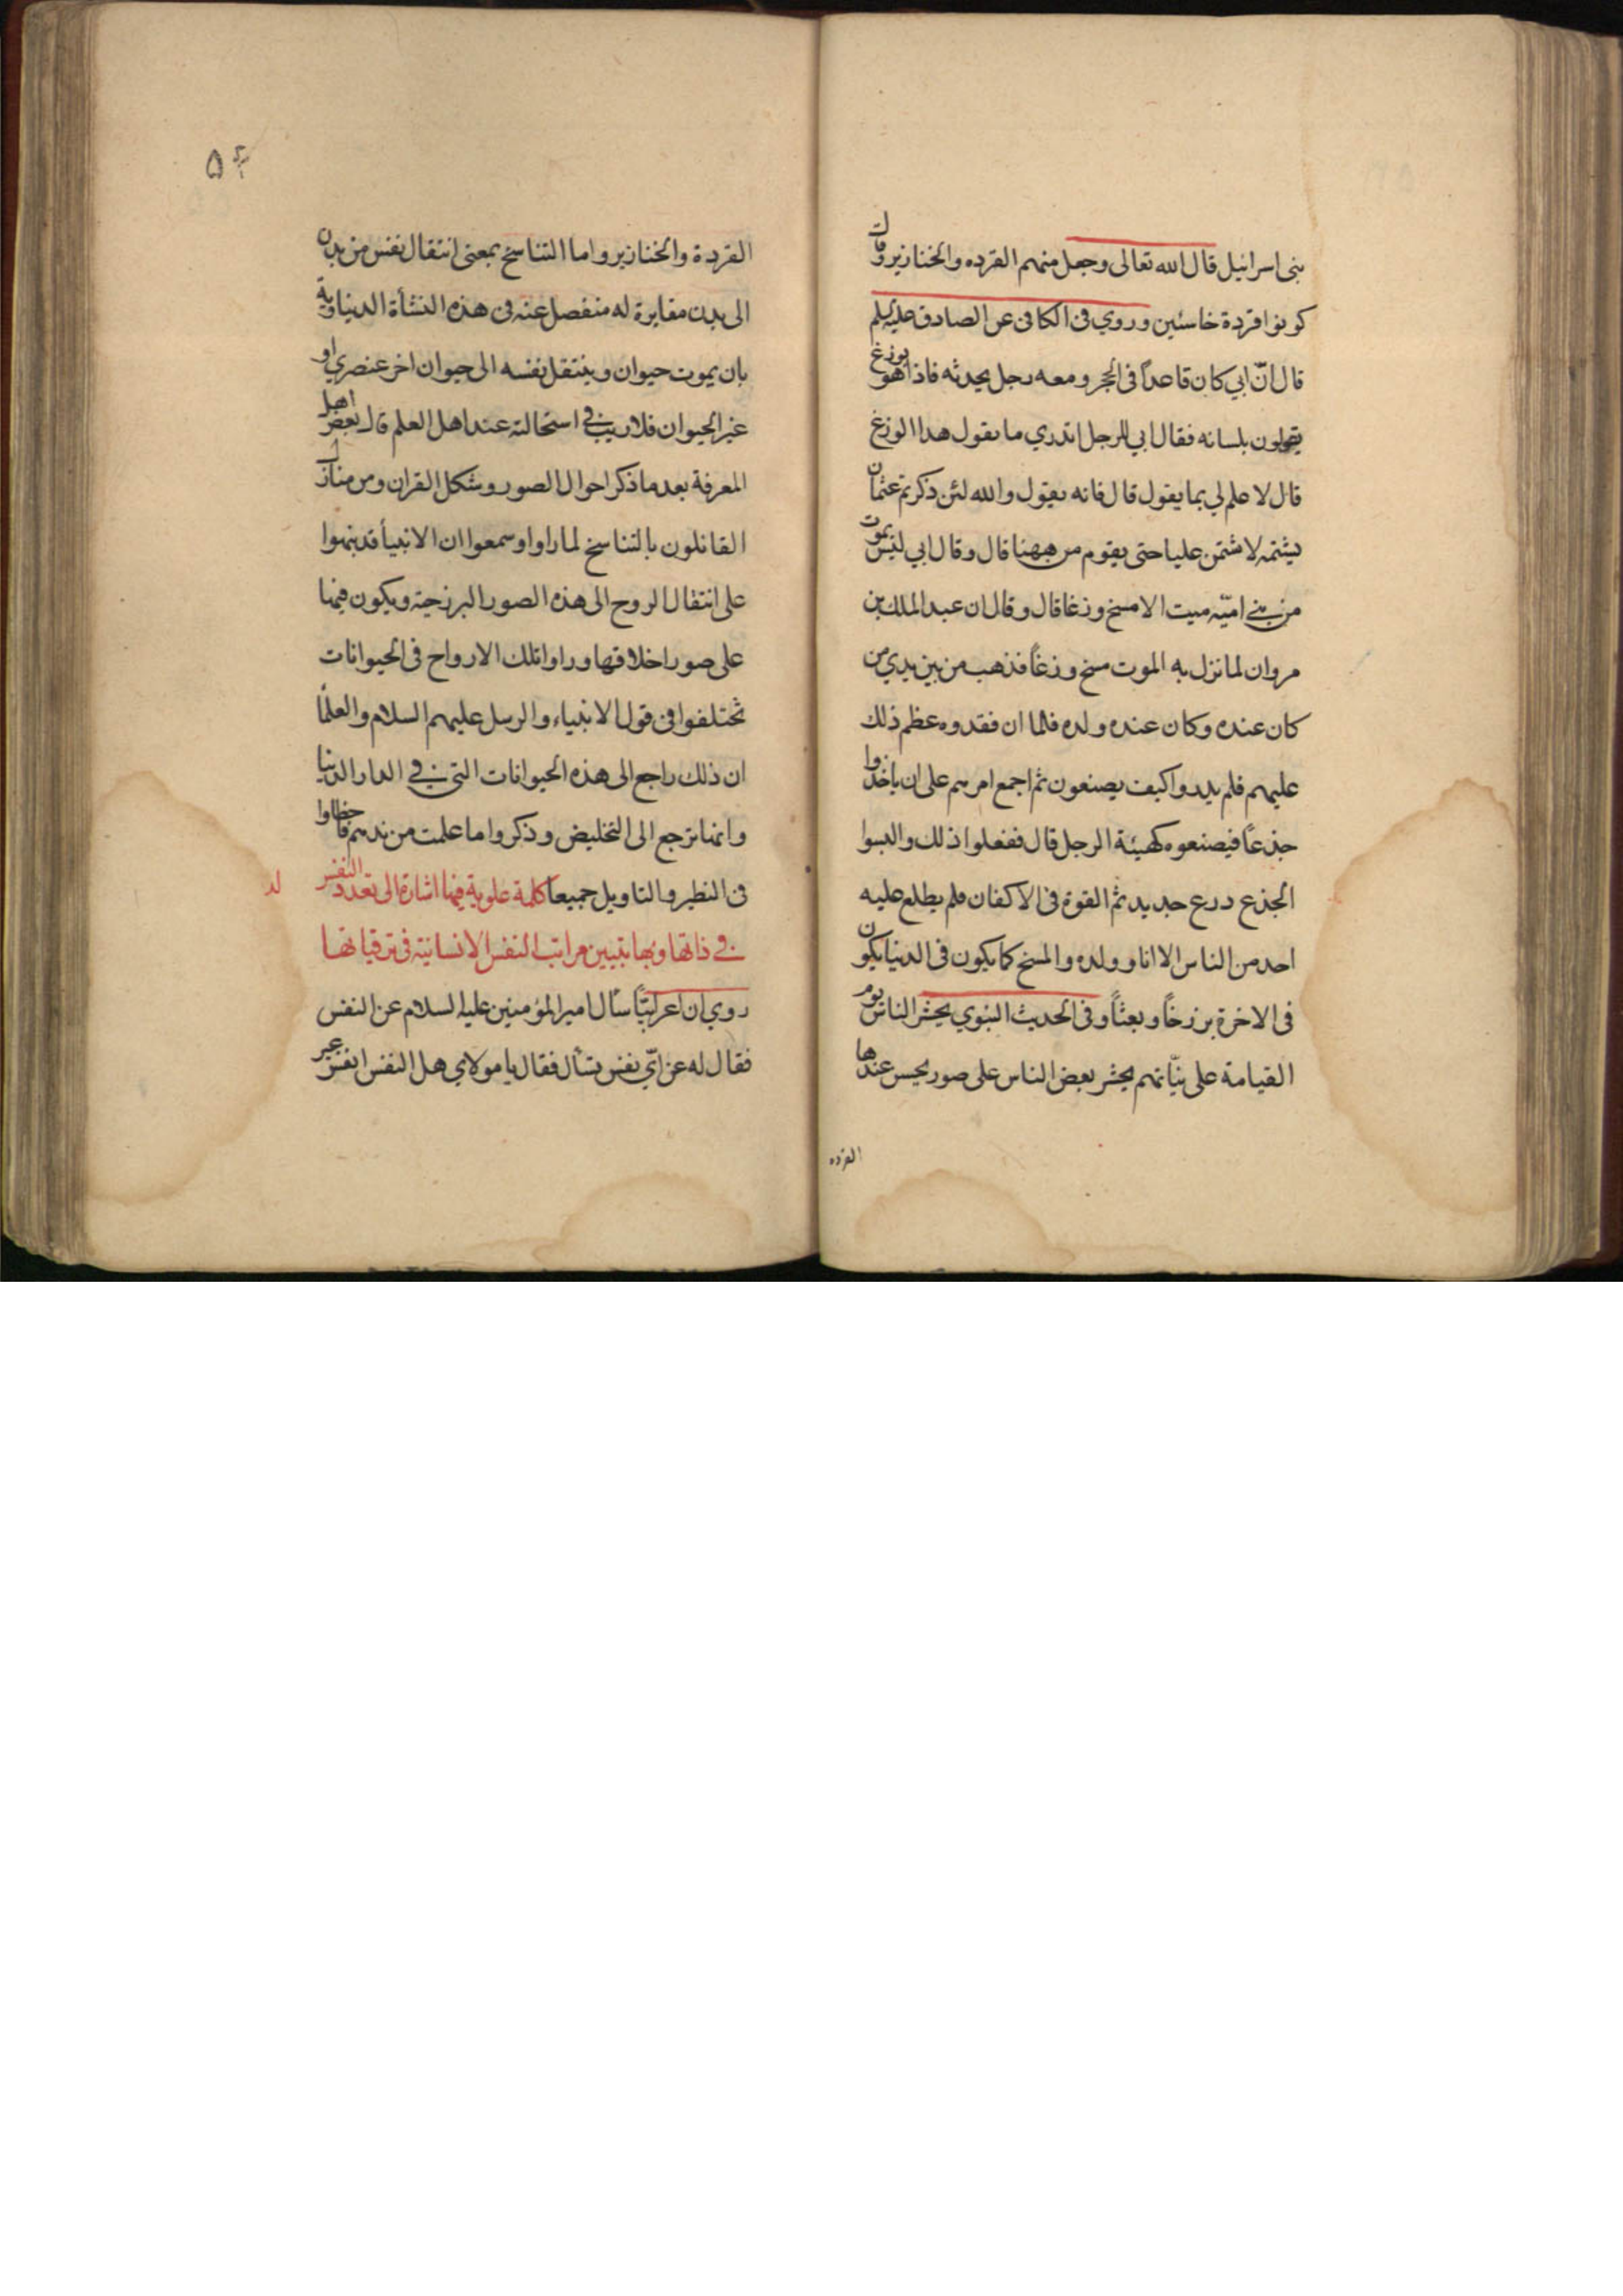 بنى اسرائيل قال الله تعالى وجعل منهم القرده والخنازير وقال
كونوا قردة خاسئين وروي فى الكافى عن الصادق عليه السلم
قال انّ ابي كان قاعداً فى الحجر ومعه رجل يحدثه فاذا هو بوزغ
يقولون بلسانه فقال ابي للرجل اتدري ما يقول هذا الوزغ
قال لا علم لي بما يقول قال فانه يقول والله لئن ذكرتم عثمان
يشتمه لاشتمن عليا حتى يقوم من ههنا قال وقال ابي ليس يموت
من بني اميّه ميت الا مسخ وزغا قال وقال ان عبد الملك بن
مروان لما نزل به الموت مسخ وزغاً فذهب من بين يدي من
كان عنده وكان عنده ولده فلما ان فقدوه عظم ذلك
عليهم فلم يدروا كيف يصنعون ثم اجمع امرهم على ان ياخذوا
جذعاً فيصنعوه كهيئة الرجل قال ففعلوا ذلك والبسوا
الجذع درع حديد ثم القوة فى الاكفان فلم يطلع عليه
احد من الناس الا انا وولده والمسخ كما يكون فى الدنيا يكون
فى الاخرة برزخاً وبعثاً وفى الحديث النبوي يحشر الناس يوم
القيامة على نيّاتهم يحشر بعض الناس على صور يحسن عندها
القرده
۵۴
القردة والخنازير واما التناسخ بمعنى انتقال نفس من بدن
الى بدن مغايرة له منفصل عنه فى هذه النشأة الدنياوية
بان يموت حيوان وينتقل نفسه الى حيوان اخر عنصري او
غير الحيوان فلا ريب في استحالته عند اهل العلم قال بعض اهل
المعرفة بعد ما ذكر احوال الصور وشكل القران ومن هنا زل
القائلون بالتناسخ لما راوا او سمعوا ان الانبيأ قد نبهوا
على انتقال الروح الى هذه الصور البرزخية ويكون فيها
على صور اخلاقها وراوا تلك الارواح فى الحيوانات
تختلفوا فى قول الانبياء والرسل عليهم السلام والعلمأ
ان ذلك راجع الى هذه الحيوانات التي في الدار الدنيا
وانها ترجع الى التخليص وذكروا ما علمت من مذهبهم فاخطاوا
فى النظر والتاويل جميعا كلمة علوية فيها اشارة الى تعدد النفس
لد
في ذاتها وبها يتبين مراتب النفس الانسانية فى ترقياتها
روي ان اعرابيّاً سأل امير المؤمنين عليه السلام عن النفس
فقال له عن ايّ نفس تسأل فقال يا مولاي هل النفس انفس